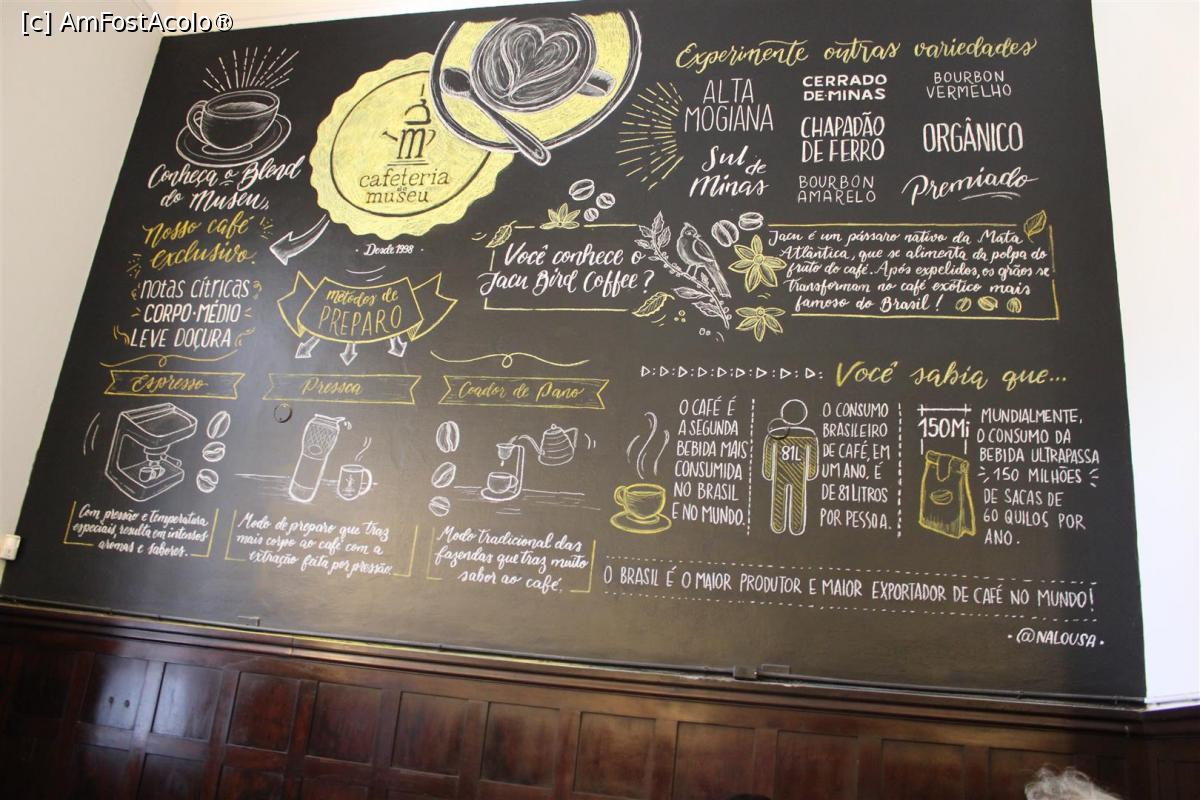 [c] AmFostAcolo®
Conheça o Blend
do Museu,
Nosso café
exclusivo.
NOTAS CÍTRICAS
CORPO·MÉDIO
LEVE DOÇURA
cafeteria
do
museu
· Desde 1998 ·
métodos de
PREPARO
Espresso
Com pressão e temperatura
especiais, resulta em intensos
aromas e sabores.
Pressca
Modo de preparo que traz
mais corpo ao café com a
extração feita por pressão.
Coador de Pano
Modo tradicional das
fazendas que traz muito
sabor ao café.
Experimente outras variedades
ALTA
MOGIANA
Sul de
Minas
CERRADO
DE·MINAS
CHAPADÃO
DE FERRO
BOURBON
AMARELO
BOURBON
VERMELHO
ORGÂNICO
Premiado
Você conhece o
Jacu Bird Coffee?
Jacu é um pássaro nativo da Mata
Atlântica, que se alimenta da polpa do
fruto do café. Após expelidos, os grãos se
transformam no café exótico mais
famoso do Brasil!
Você sabia que...
O CAFÉ É
A SEGUNDA
BEBIDA MAIS
CONSUMIDA
NO BRASIL
E NO MUNDO.
81L
O CONSUMO
BRASILEIRO
DE CAFÉ, EM
UM ANO, É
DE 81 LITROS
POR PESSOA.
150Mi
MUNDIALMENTE,
O CONSUMO DA
BEBIDA ULTRAPASSA
150 MILHÕES
DE SACAS DE
60 QUILOS POR
ANO.
O BRASIL É O MAIOR PRODUTOR E MAIOR EXPORTADOR DE CAFÉ NO MUNDO!
· @NALOUSA ·